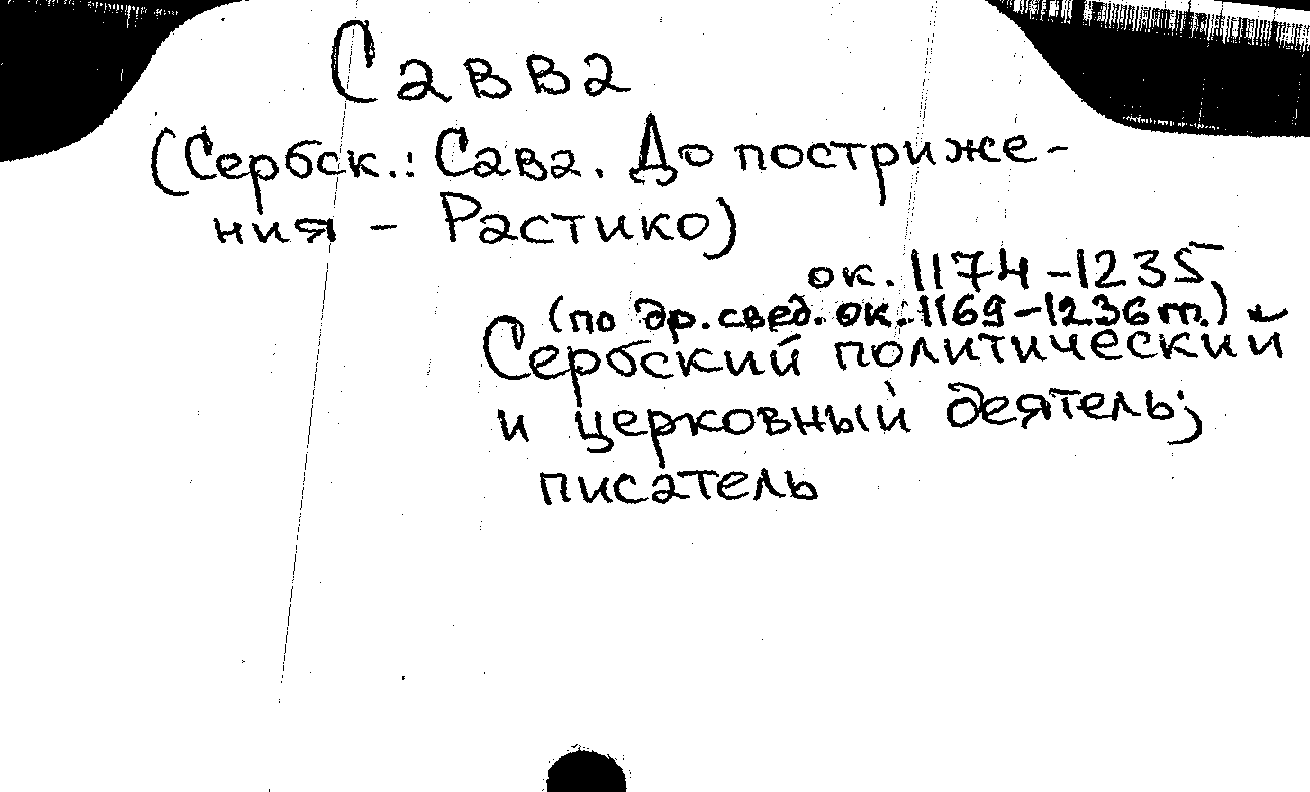 Савва
(Сербск.: Сава. До постриже-
ния - Растико)
ок. 1174-1235
(по др. свед. ок. 1169-1236 гг.)
Сербский политический
и церковный деятель;
писатель